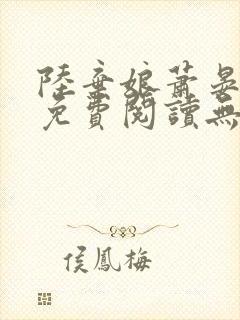 陸棄娘蕭晏
免費閱讀無
侯鳳梅